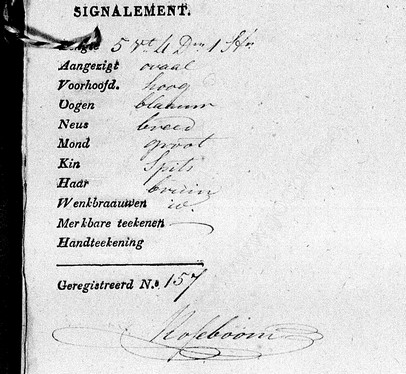 SIGNALEMENT.
Lengte 5 vt 4 Dm 1 Str
Aangezigt ovaal
Voorhoofd. hoog
Oogen blaauw
Neus breed
Mond groot
Kin Spits
Haar bruin
Wenkbraauwen id.
Merkbare teekenen —
Handteekening
Geregistreerd N.º 157
Roseboom